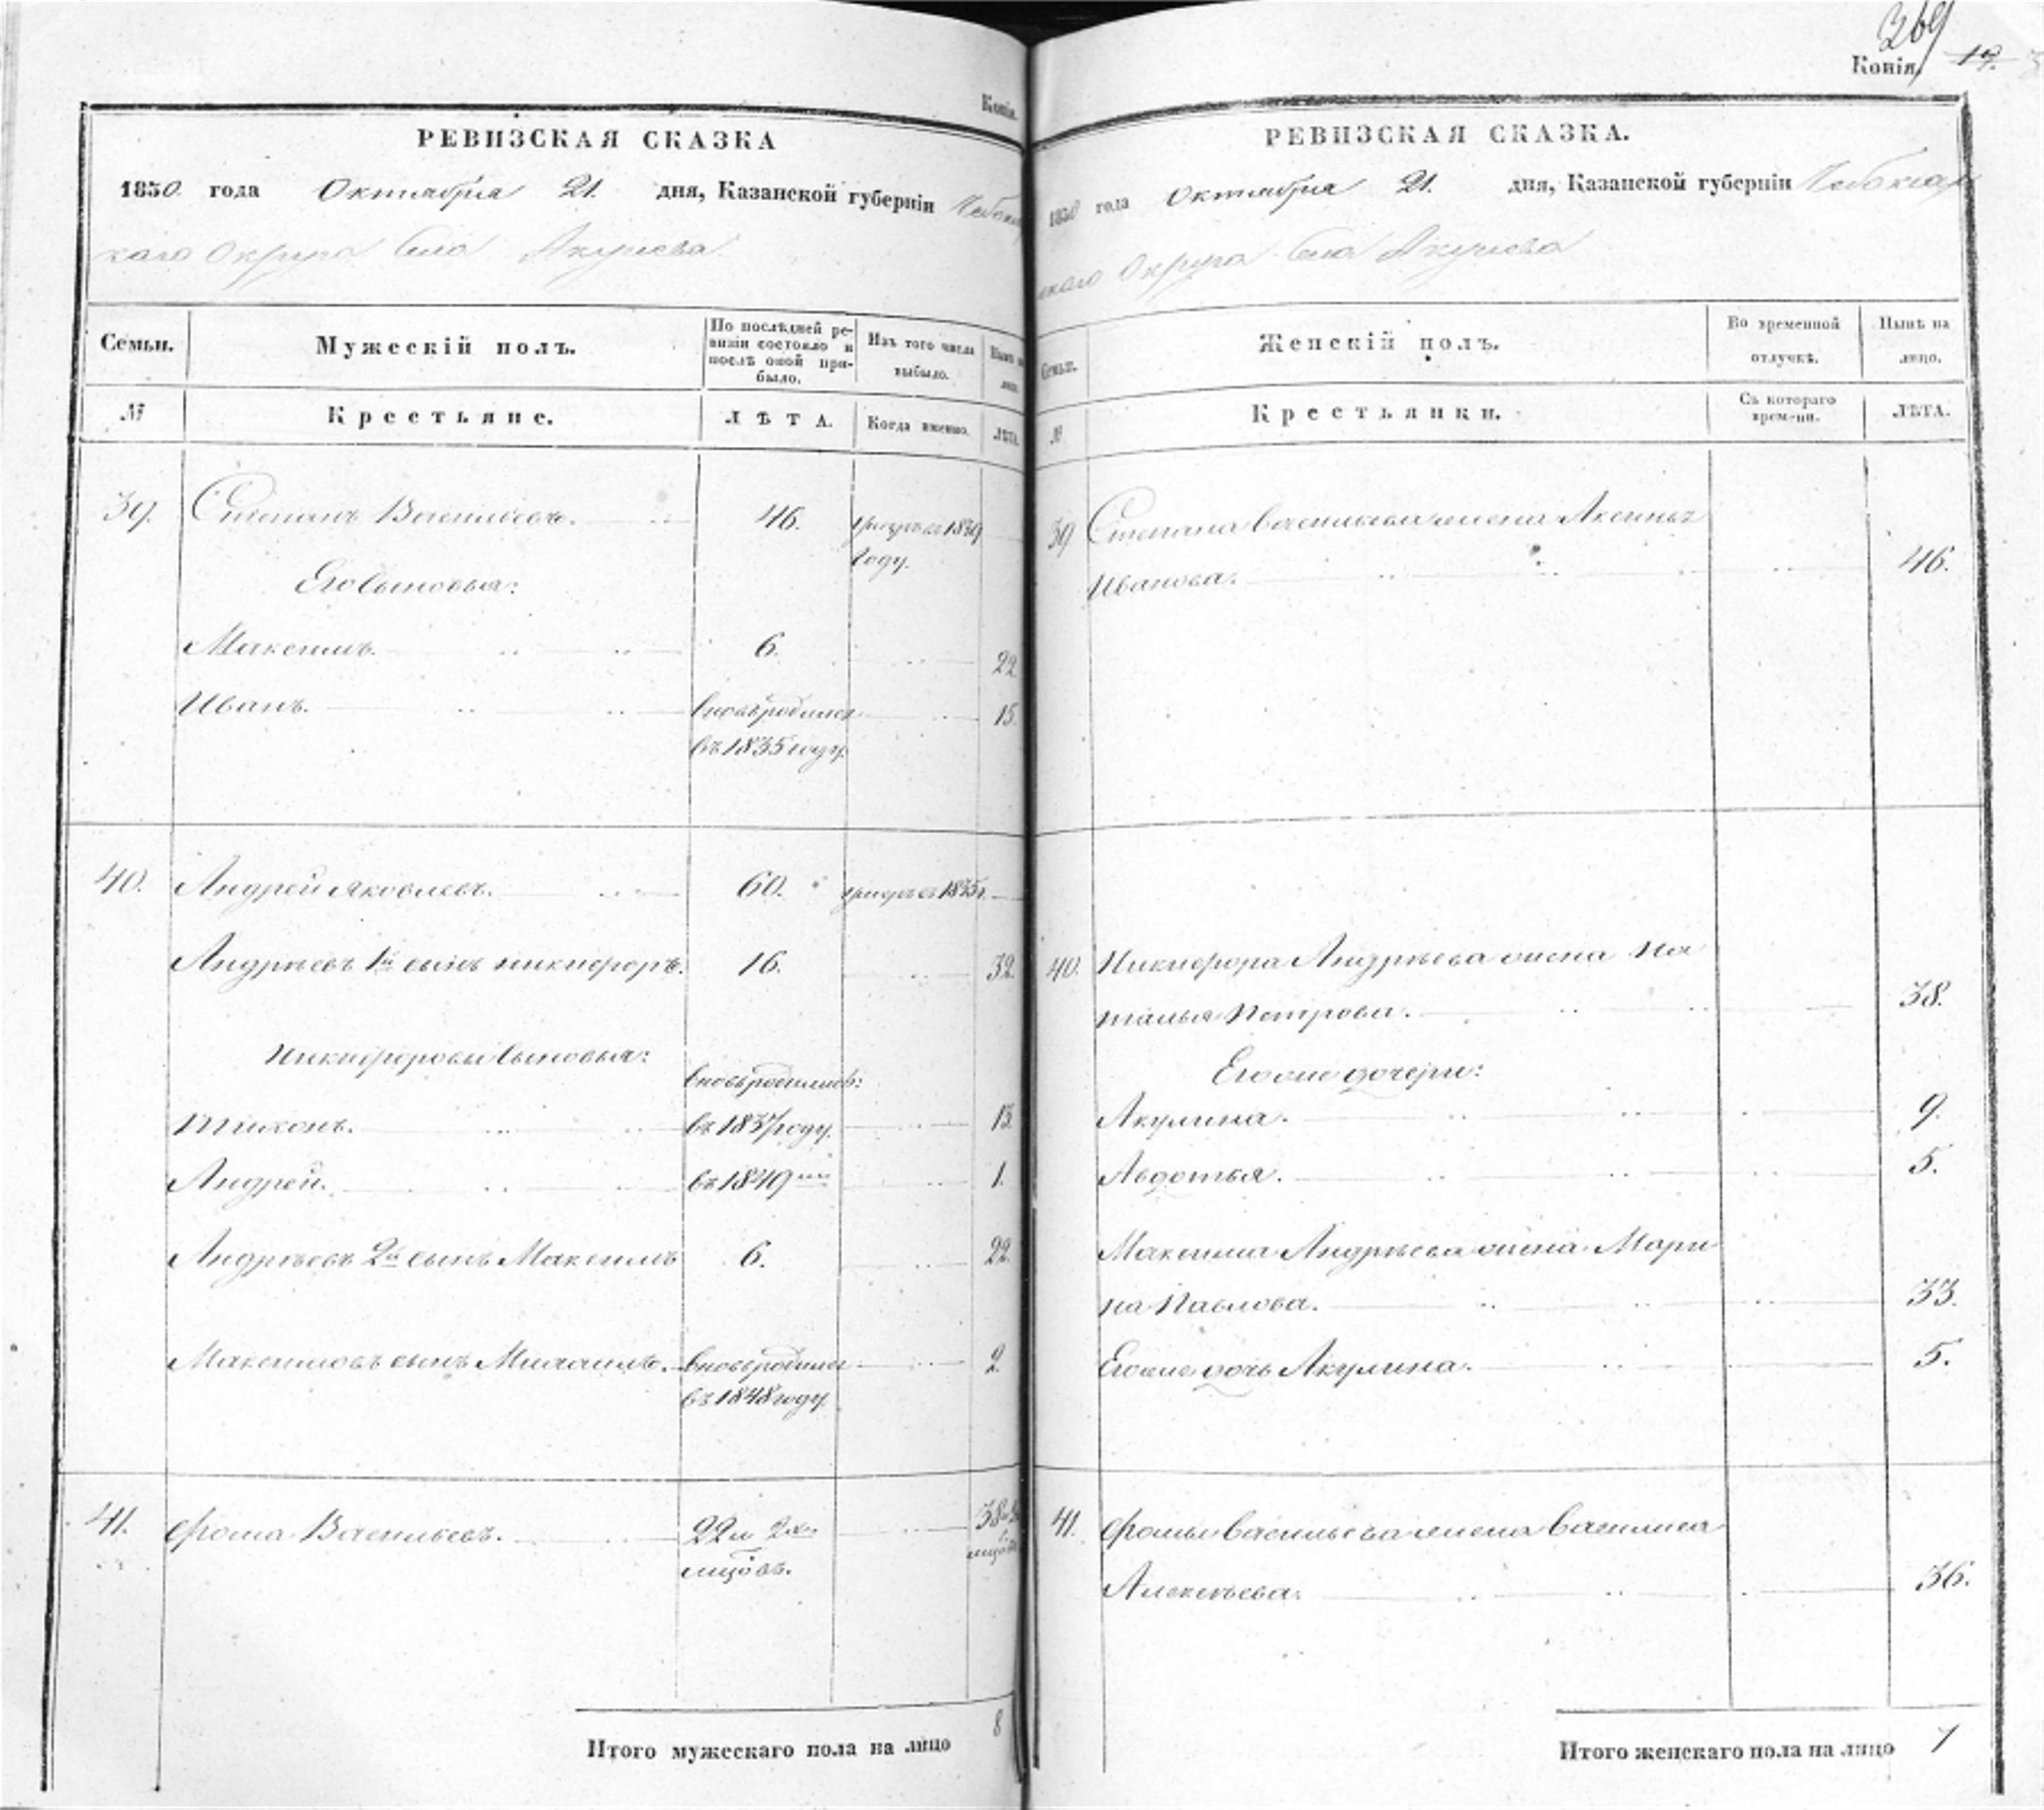 Копія.
РЕВИЗСКАЯ СКАЗКА
1850 года Октября 21. дня, Казанской губерніи Чебокса
каго Округа Села Акулева
Семьи.
Мужескій полъ.
По послѣдней ре-
визіи состояло и
послѣ оной при-
было.
Изъ того числа
выбыло.
Нынѣ на
лицо.
№
Крестьяне.
ЛѢТА.
Когда именно.
ЛѢТА.
39. Степанъ Васильевъ. 46. умеръ въ 1839
году.
Его сыновья:
Максимъ. 6. 22
Иванъ. вновь родился 15.
въ 1835 году.
40. Андрей Яковлевъ. 60. умеръ въ 1835 г.
Андреевъ 1й сынъ Никифоръ. 16. 32.
Никифоровы сыновья:
вновь родились:
Тихонъ. въ 1837 году. 13.
Андрей. въ 1849 1.
Андреевъ 2й сынъ Максимъ 6. 22.
Максимовъ сынъ Михаилъ. вновь родился 2.
въ 1848 году.
41. Фома Васильевъ. 22 и 2хъ 38
мцовъ.
Итого мужескаго пола на лицо 8
369
Копія. 19.
РЕВИЗСКАЯ СКАЗКА.
1850 года Октября 21. дня, Казанской губерніи Чебоксар
скаго Округа Села Акулева
Семьи.
Женскій полъ.
Во временной
отлучкѣ.
Нынѣ на
лицо.
№
Крестьянки.
Съ котораго
времени.
ЛѢТА.
39 Степана Васильева жена Аксинья
Иванова. 46.
40. Никифора Андреева жена На
талья Петрова. 38.
Его же дочери:
Акулина. 9.
Авдотья. 5.
Максима Андреева жена Мари
на Павлова. 33.
Его же дочь Акулина. 5.
41. Фомы Васильева жена Василиса
Алексѣева. 36.
Итого женскаго пола на лицо 7